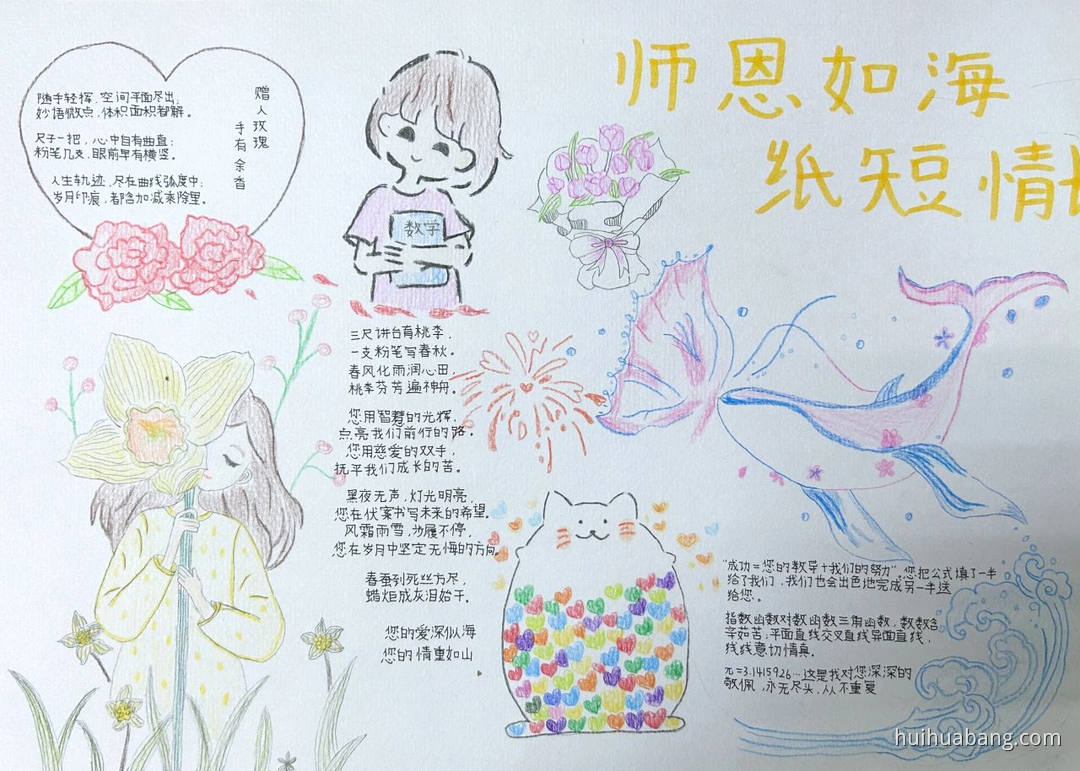 师恩如海
纸短情
赠人玫瑰
手有余香
随手轻挥，空间平面尽出，
妙语微点，体积面积都解。
尺子一把，心中自有曲直；
粉笔几支，眼前早有横竖。
人生轨迹，尽在曲线弧度中；
岁月印痕，都含加减乘除里。
数学
三尺讲台育桃李，
一支粉笔写春秋。
春风化雨润心田，
桃李芬芳遍神舟。
您用智慧的光辉，
点亮我们前行的路。
您用慈爱的双手，
抚平我们成长的苦。
黑夜无声，灯光明亮，
您在伏案书写未来的希望。
风霜雨雪，步履不停，
您在岁月中坚定无悔的方向。
春蚕到死丝方尽，
蜡炬成灰泪始干。
您的爱深似海
您的情重如山
“成功=您的教导+我们的努力”，您把公式填了一半
给了我们，我们也会出色地完成另一半送
给您。
指数函数对数函数三角函数，数数含
辛茹苦，平面直线交叉直线异面直线，
线线意切情真。
π=3.1415926…这是我对您深深的
敬佩，亦无尽头，从不重复
huihuabang.com